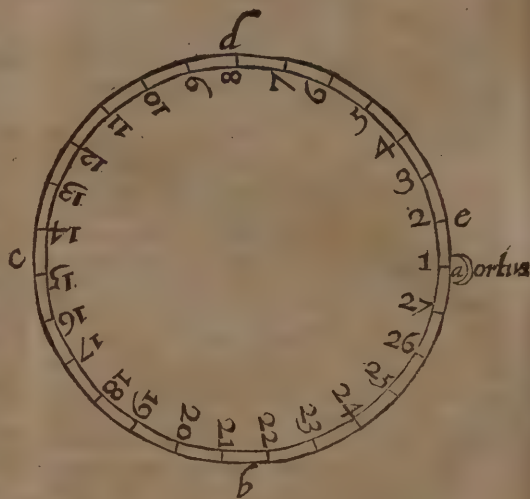 d
8
7
6
5
4
3
2
e
1
a
ortus
27
26
25
24
23
22
b
21
20
19
18
17
16
15
c
14
13
12
11
10
9